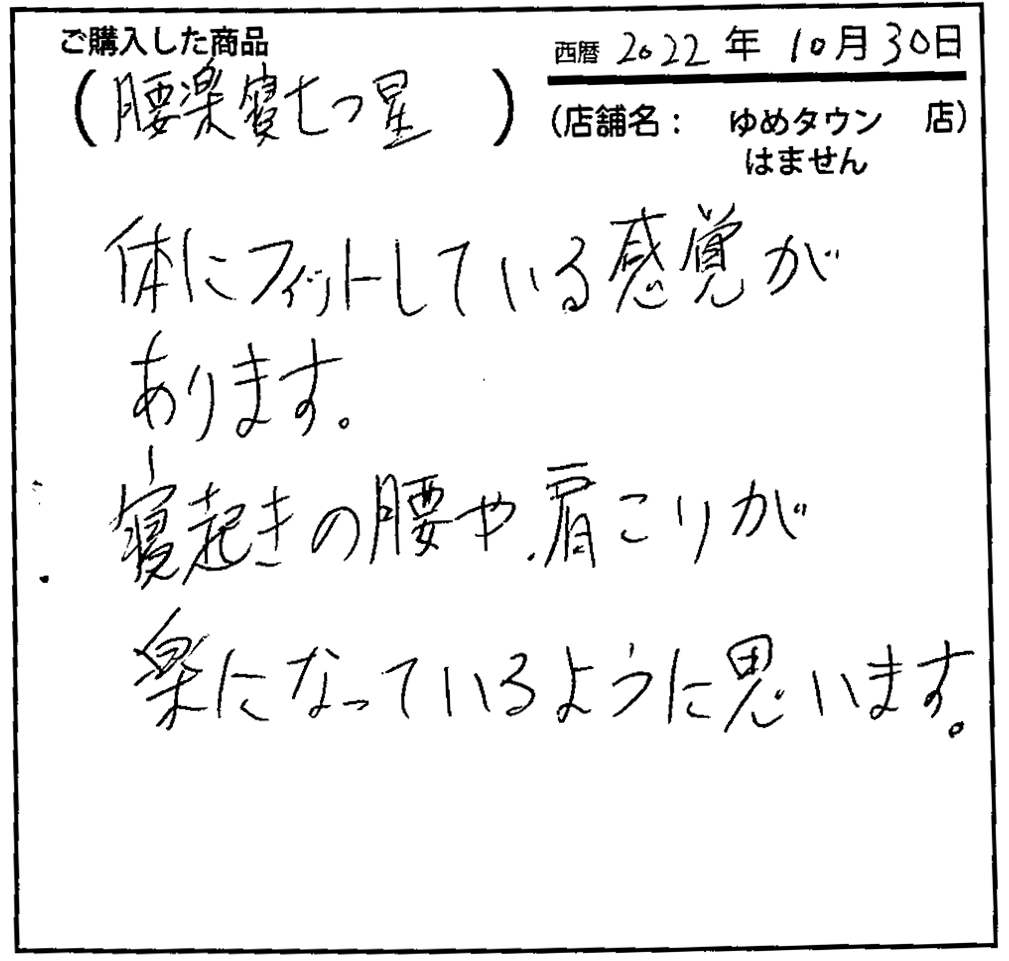 ご購入した商品
西暦 2022 年 10月30日
(腰楽寝七つ星 )
(店舗名: ゆめタウン 店)
はません
体にフィットしている感覚が
あります。
寝起きの腰や、肩こりが
楽になっているように思います。